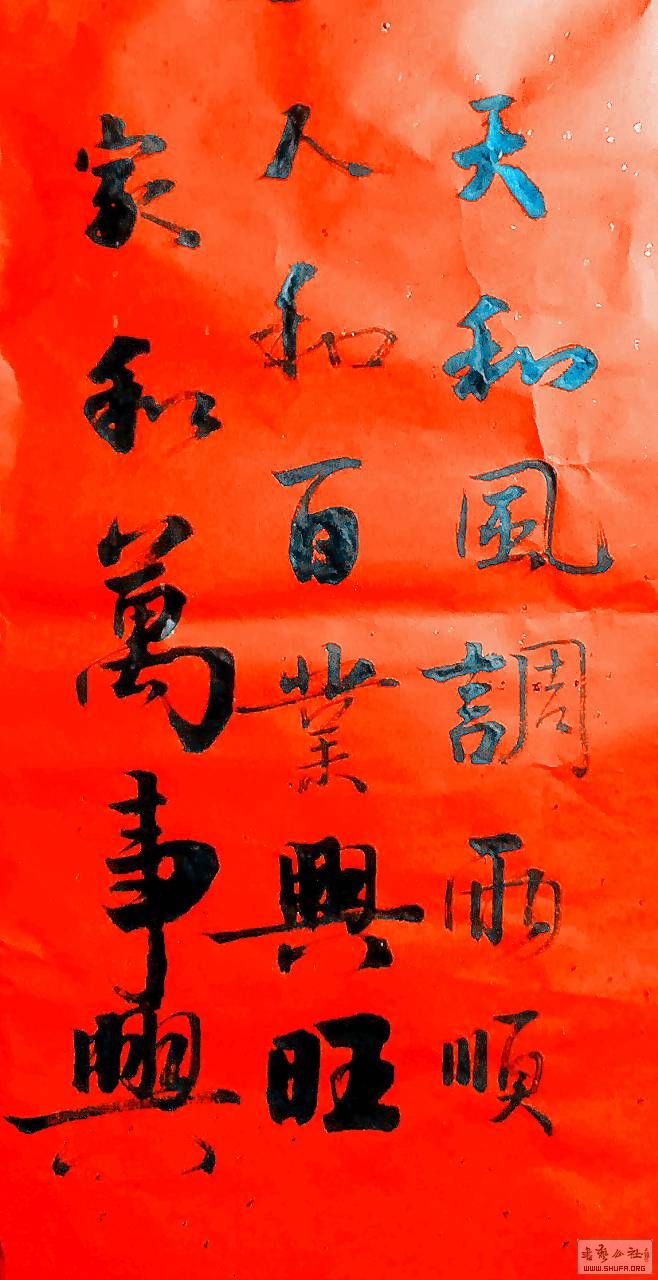 天和風調雨順
人和百業興旺
家和萬事興
書藝公社
WWW.SHUFA.ORG